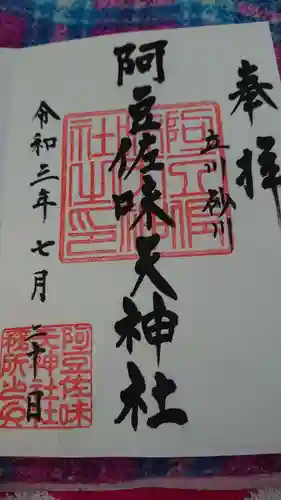 奉拝
立川砂川
阿豆佐味天神社
令和三年七月二十日
阿豆佐味
天神社